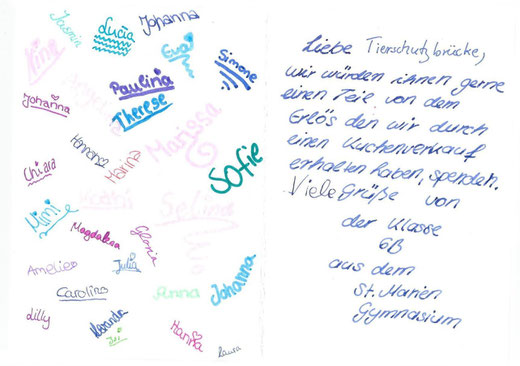 Jasmin
Lucia
Johanna
Nina
Eva
Simone
Paulina
Therese
Johanna
Hannah
Marina
Marissa
Sofie
Chiara
Mimi
Selina
Magdalena
Gloria
Amelie
Julia
Carolina
Anna
Johanna
Lilly
Alexandra
Isi
Hanna
Laura
Liebe Tierschutzbrücke,
wir würden ihnen gerne
einen Teil von dem
Erlös den wir durch
einen Kuchenverkauf
erhalten haben, spenden.
Viele Grüße von
der Klasse
6B
aus dem
St. Marien
Gymnasium